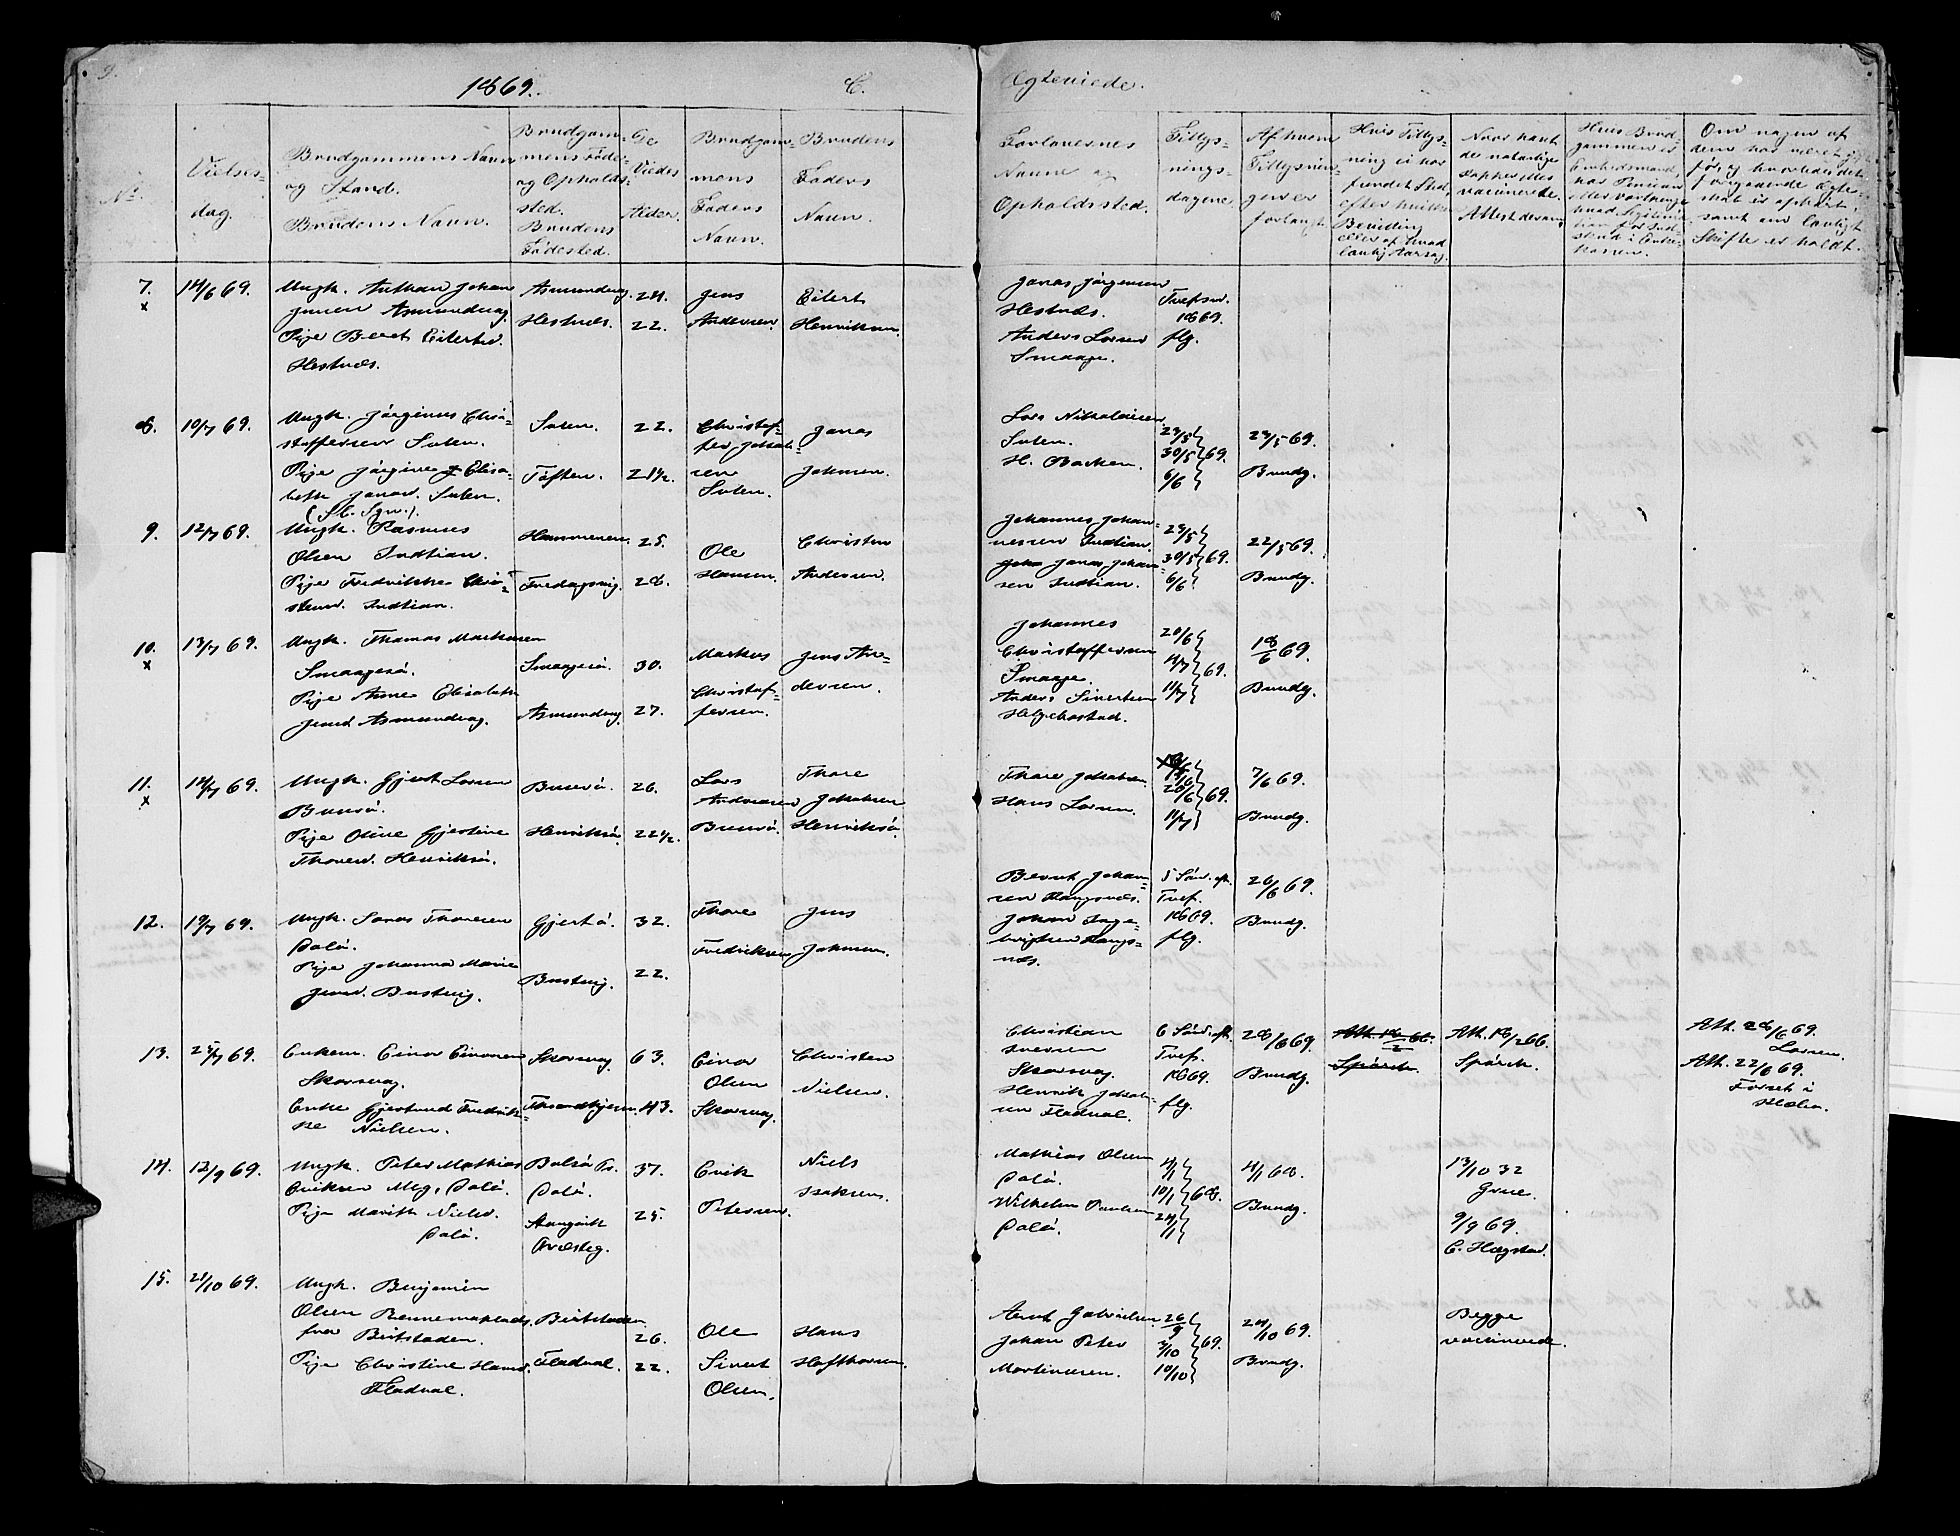 9.
1869.
C.
Ægteviede.
No.
Vielses-
dag.
Brudgommens Navn
og Stand.
Brudens Navn.
Brudgom-
mens Føde-
og Opholds-
sted.
Brudens
Fødested.
De
Viedes
Alder.
Brudgom-
mens
Faders
Navn.
Brudens
Faders
Navn.
Forlovernes
Navne og
Opholdssted.
Tillys-
nings-
dagene.
Af hvem
Tillysnin-
gen er
forlangt.
Hvis Tillys-
ning ei har
fundet Sted,
efter hvilken
Bevilling
eller af hvad
lovlig Aarsag.
Naar havt
de naturlige
Kopper eller
vaccinerede.
Attest derom.
Hvis Brud-
gommen er
Embedsmand,
Om nogen af
dem har været gift
før, og hvorledes det
foregaaende Ægte-
skab er ophævet,
samt om lovligt
Skifte er holdt.
7.
x
14/6 69.
Ungk. Anthon Johan
Jensen Asmundvag.
Pige Beret Eilertsd.
Hestnæs.
Asmundvag
Hestnæs.
24.
22.
Jens
Andersen
Eilert
Henriksen.
Jonas Jørgensen
Hestnæs.
Anders Larsen
Smaage.
Trefsv.
1869.
flg.
8.
10/7 69.
Ungk. Jørginus Chri-
stoffersen Sulen.
Pige Jørgine Elisa-
beth Jonasd. Sulen.
Sulen.
Tøften.
22.
21 1/2.
Christof-
fer Johan-
sen
Sulen.
Jonas
Johnsen.
Lars Nikolaisen
Sulen.
H. Backen.
23/5
30/5 69.
6/6
22/5 69.
Brudg.
9.
12/7 69.
Ungk. Rasmus
Olsen Indtian.
Pige Fredrikke Chri-
stensd. Indtian.
Hammeren.
Fredagsvig.
25.
28.
Ole
Hansen.
Christen
Andersen.
Johannes Johan-
nessen Indtian.
Jonas Johan-
sen Indtian.
23/5
30/5 69.
6/6
22/5 69.
Brudg.
10.
x
13/7 69.
Ungk. Thomas Markusen
Smaagesø.
Pige Anne Elisabeth
Jensd Asmundvag.
Smaagesø.
Asmundvag
30.
27.
Markus
Christof-
fersen.
Jens An-
dersen.
Johannes
Christoffersen
Smaage.
Anders Sivertsen
Helgebostad.
20/6
4/7 69.
11/7
18/6 69.
Brudg.
11.
x
14/7 69.
Ungk. Gjert Larsen
Burøø.
Pige Oline Gjertine
Thoresd. Henriksø.
Henriksø.
26.
22 1/2.
Lars
Andreasen
Thore
Johansen
Henriksø.
Thore Johansen
Hans Larsen.
20/6 69.
11/7
7/6 69.
Brudg.
12.
19/7 69.
Ungk. Jonas Thoresen
Dolø.
Pige Johanna Marie
Jensd. Bustvig.
Gjertø.
Bustvig.
32.
22.
Thore
Fredriksen
Jens
Johnsen.
Bernt Johan-
sen Kongsnæs.
Johan Inge-
brigtsen Kongs-
næs.
5 Sønd. eft.
Tref.
1869.
flg.
26/6 69.
Brudg.
13.
25/7 69.
Enkem. Einar Einarsen
Skarsvag.
Enke Gjertrud Fredrik-
ke Nielsen.
Skarsvag
Throndhjem.
63.
43.
Einar
Olsen
Skarsvag
Christen
Nielsen.
Christian
Iversen
Skarsvag
Henrik Johan-
sen Fladval.
6 Sønd. eft.
Tref.
1869.
flg.
28/6 69.
Brudg.
Att. 18/2 66.
Spörck.
Att. 18/2 66.
Spörck.
Att. 28/6 69.
Larsen.
Att. 22/6 69.
Forseth i
Melhus.
14.
12/9 69.
Ungk. Peter Mathias
Eriksen Meg, Dolø.
Pige Marith Nielsd.
Dolø.
Dolø.
37.
25.
Erik
Petersen.
Niels
Isaksen.
Mathias Olsen
Dolø.
Wilhelm Paulsen
Dolø.
4/1
10/1 68.
24/1
4/1 68.
Brudg.
13/10 32
Grue.
9/9 69
C. Hægstad.
15.
21/10 69.
Ungk. Benjamin
Olsen Rennemaplads
fra Beitstaden.
Pige Christine Hansd.
Fladval.
Beitstaden
Fladval.
26.
22.
Ole
Sivert
Olsen.
Hans
Hofthorsen.
Arnt Gabrielsen.
Johan Peter
Martinusen.
26/9
3/10 69.
10/10
24/10 69.
Brudg.
Begge
vaccinerede.